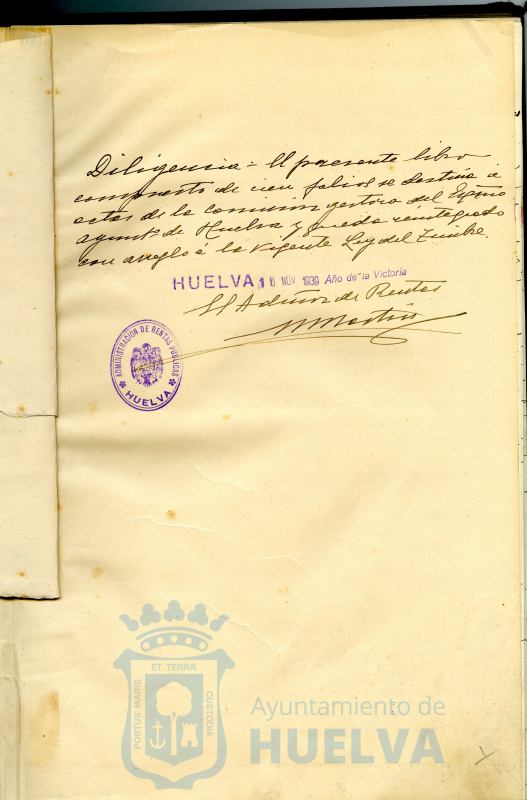 Diligencia = El presente libro
compuesto de cien folios se destina á
actas de la comisión gestora del Exmo
ayunto de Huelva y queda reintegrado
con arreglo á la vigente Ley del Timbre.
HUELVA 16 NOV 1939 Año de la Victoria
El Admor de Rentas
ADMINISTRACION DE RENTAS PUBLICAS
HUELVA
ET TERRÆ
PORTUS MARIS
CUSTODIA
Ayuntamiento de
HUELVA